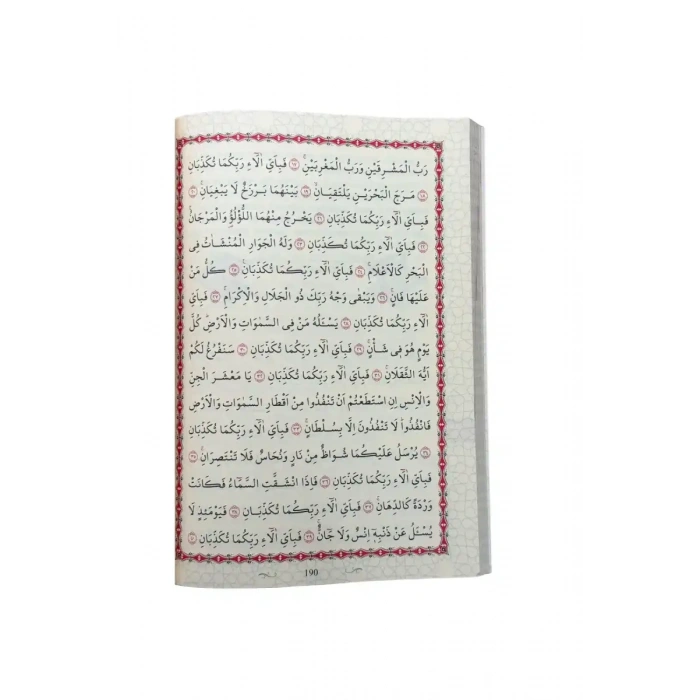 رَبُّ الْمَشْرِقَيْنِ وَرَبُّ الْمَغْرِبَيْنِۚ ﴿١٧﴾ فَبِاَيِّ اٰلَٓاءِ رَبِّكُمَا تُكَذِّبَانِ
﴿١٨﴾ مَرَجَ الْبَحْرَيْنِ يَلْتَقِيَانِۙ ﴿١٩﴾ بَيْنَهُمَا بَرْزَخٌ لَا يَبْغِيَانِۚ ﴿٢٠﴾
فَبِاَيِّ اٰلَٓاءِ رَبِّكُمَا تُكَذِّبَانِ ﴿٢١﴾ يَخْرُجُ مِنْهُمَا اللُّؤْلُؤُ۬ وَالْمَرْجَانُۚ
﴿٢٢﴾ فَبِاَيِّ اٰلَٓاءِ رَبِّكُمَا تُكَذِّبَانِ ﴿٢٣﴾ وَلَهُ الْجَوَارِ الْمُنْشَاٰتُ فِى
الْبَحْرِ كَالْاَعْلَامِۚ ﴿٢٤﴾ فَبِاَيِّ اٰلَٓاءِ رَبِّكُمَا تُكَذِّبَانِ۟ ﴿٢٥﴾ كُلُّ مَنْ
عَلَيْهَا فَانٍۚ ﴿٢٦﴾ وَيَبْقٰى وَجْهُ رَبِّكَ ذُو الْجَلَالِ وَالْاِكْرَامِۚ ﴿٢٧﴾ فَبِاَيِّ
اٰلَٓاءِ رَبِّكُمَا تُكَذِّبَانِ ﴿٢٨﴾ يَسْـَٔلُهُ مَنْ فِى السَّمٰوَاتِ وَالْاَرْضِۜ كُلَّ
يَوْمٍ هُوَ فِى شَأْنٍۚ ﴿٢٩﴾ فَبِاَيِّ اٰلَٓاءِ رَبِّكُمَا تُكَذِّبَانِ ﴿٣٠﴾ سَنَفْرُغُ لَكُمْ
اَيُّهَ الثَّقَلَانِۚ ﴿٣١﴾ فَبِاَيِّ اٰلَٓاءِ رَبِّكُمَا تُكَذِّبَانِ ﴿٣٢﴾ يَا مَعْشَرَ الْجِنِّ
وَالْاِنْسِ اِنِ اسْتَطَعْتُمْ اَنْ تَنْفُذُوا مِنْ اَقْطَارِ السَّمٰوَاتِ وَالْاَرْضِ
فَانْفُذُواۜ لَا تَنْفُذُونَ اِلَّا بِسُلْطَانٍۚ ﴿٣٣﴾ فَبِاَيِّ اٰلَٓاءِ رَبِّكُمَا تُكَذِّبَانِ
﴿٣٤﴾ يُرْسَلُ عَلَيْكُمَا شُوَاظٌ مِنْ نَارٍ وَنُحَاسٌ فَلَا تَنْتَصِرَانِۚ ﴿٣٥﴾
فَبِاَيِّ اٰلَٓاءِ رَبِّكُمَا تُكَذِّبَانِ ﴿٣٦﴾ فَاِذَا انْشَقَّتِ السَّمَٓاءُ فَكَانَتْ
وَرْدَةً كَالدِّهَانِۚ ﴿٣٧﴾ فَبِاَيِّ اٰلَٓاءِ رَبِّكُمَا تُكَذِّبَانِ ﴿٣٨﴾ فَيَوْمَئِذٍ لَا
يُسْـَٔلُ عَنْ ذَنْبِهٖ اِنْسٌ وَلَا جَٓانٌّۚ ﴿٣٩﴾ فَبِاَيِّ اٰلَٓاءِ رَبِّكُمَا تُكَذِّبَانِ ﴿٤٠﴾
190